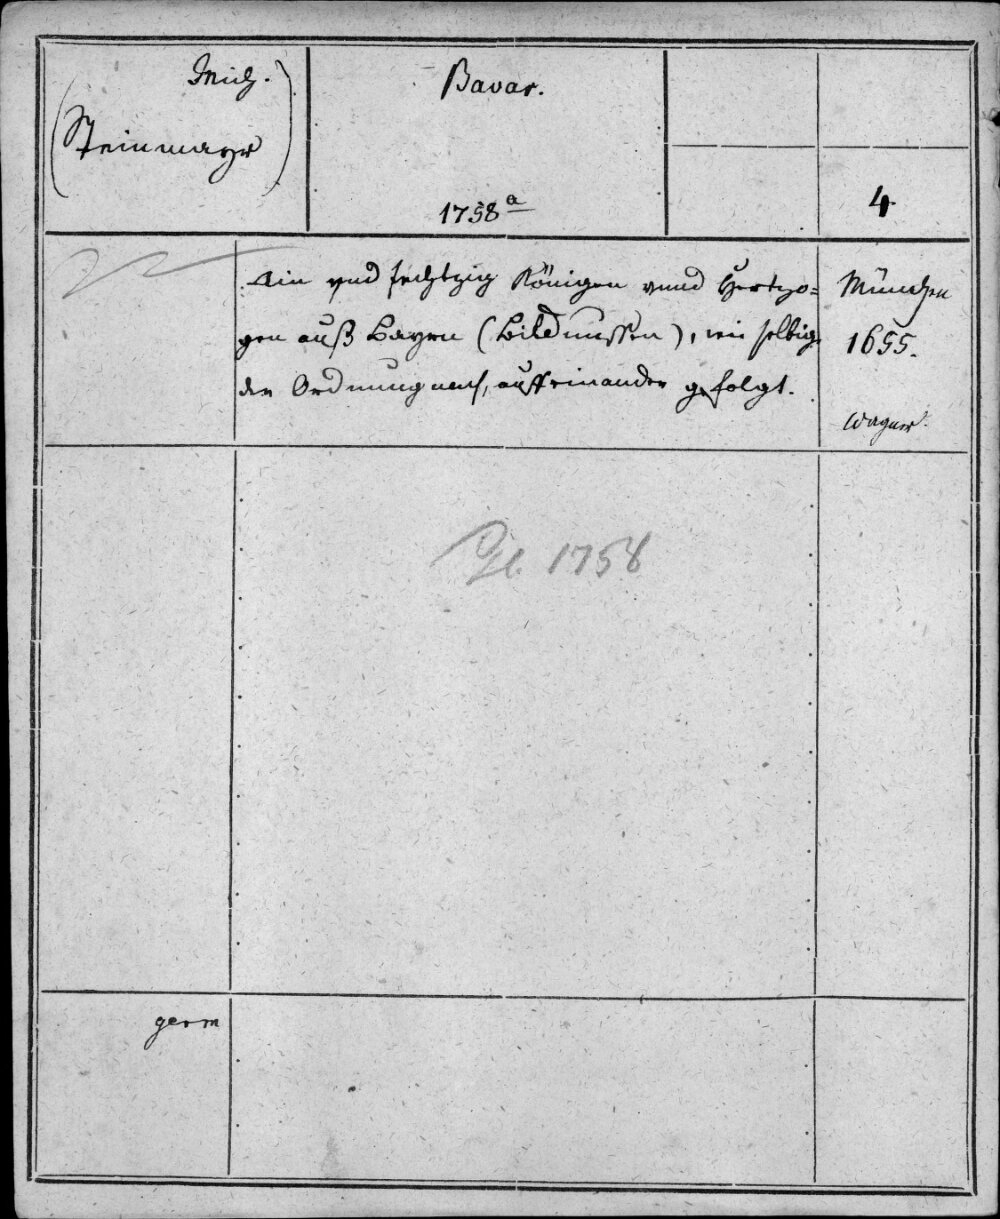 Mich.
(Steinmayr)
Bavar.
1758ª
4
Ein vnd sechtzig Königen vnnd Hertzo=
gen auß Bayrn (Bildnussen), wie selbige
der Ordnung nach, auffeinander gefolgt.
München
1655.
Wagner.
1758
germ